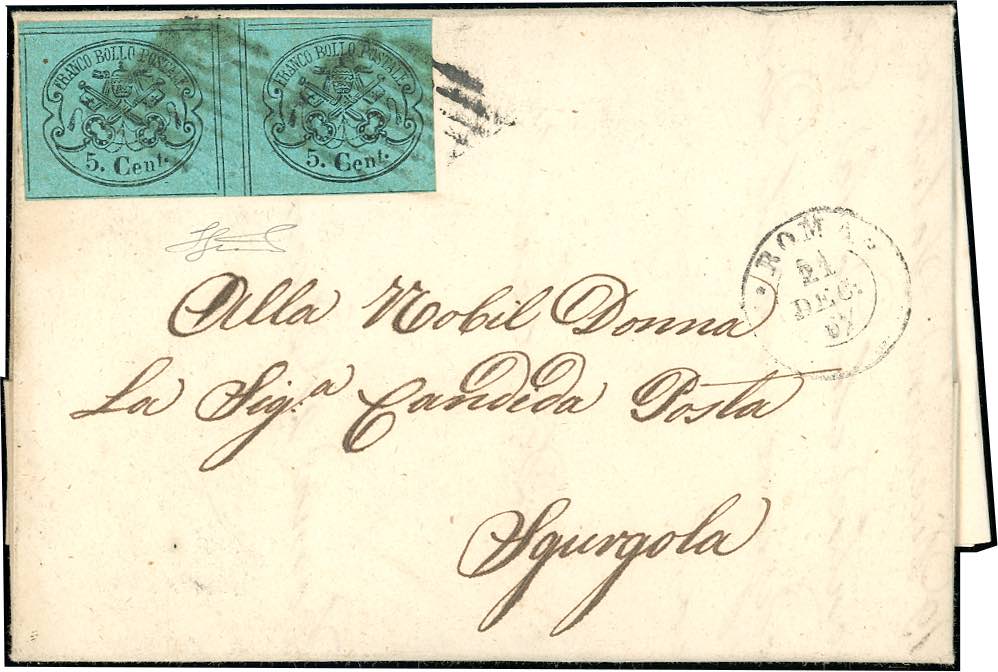 FRANCO BOLLO POSTALE
5. Cent.
FRANCO BOLLO POSTALE
5. Cent.
ROMA
21
DEC.
67
Alla Nobil Donna
La Sig.ª Candida Posta
Sgurgola